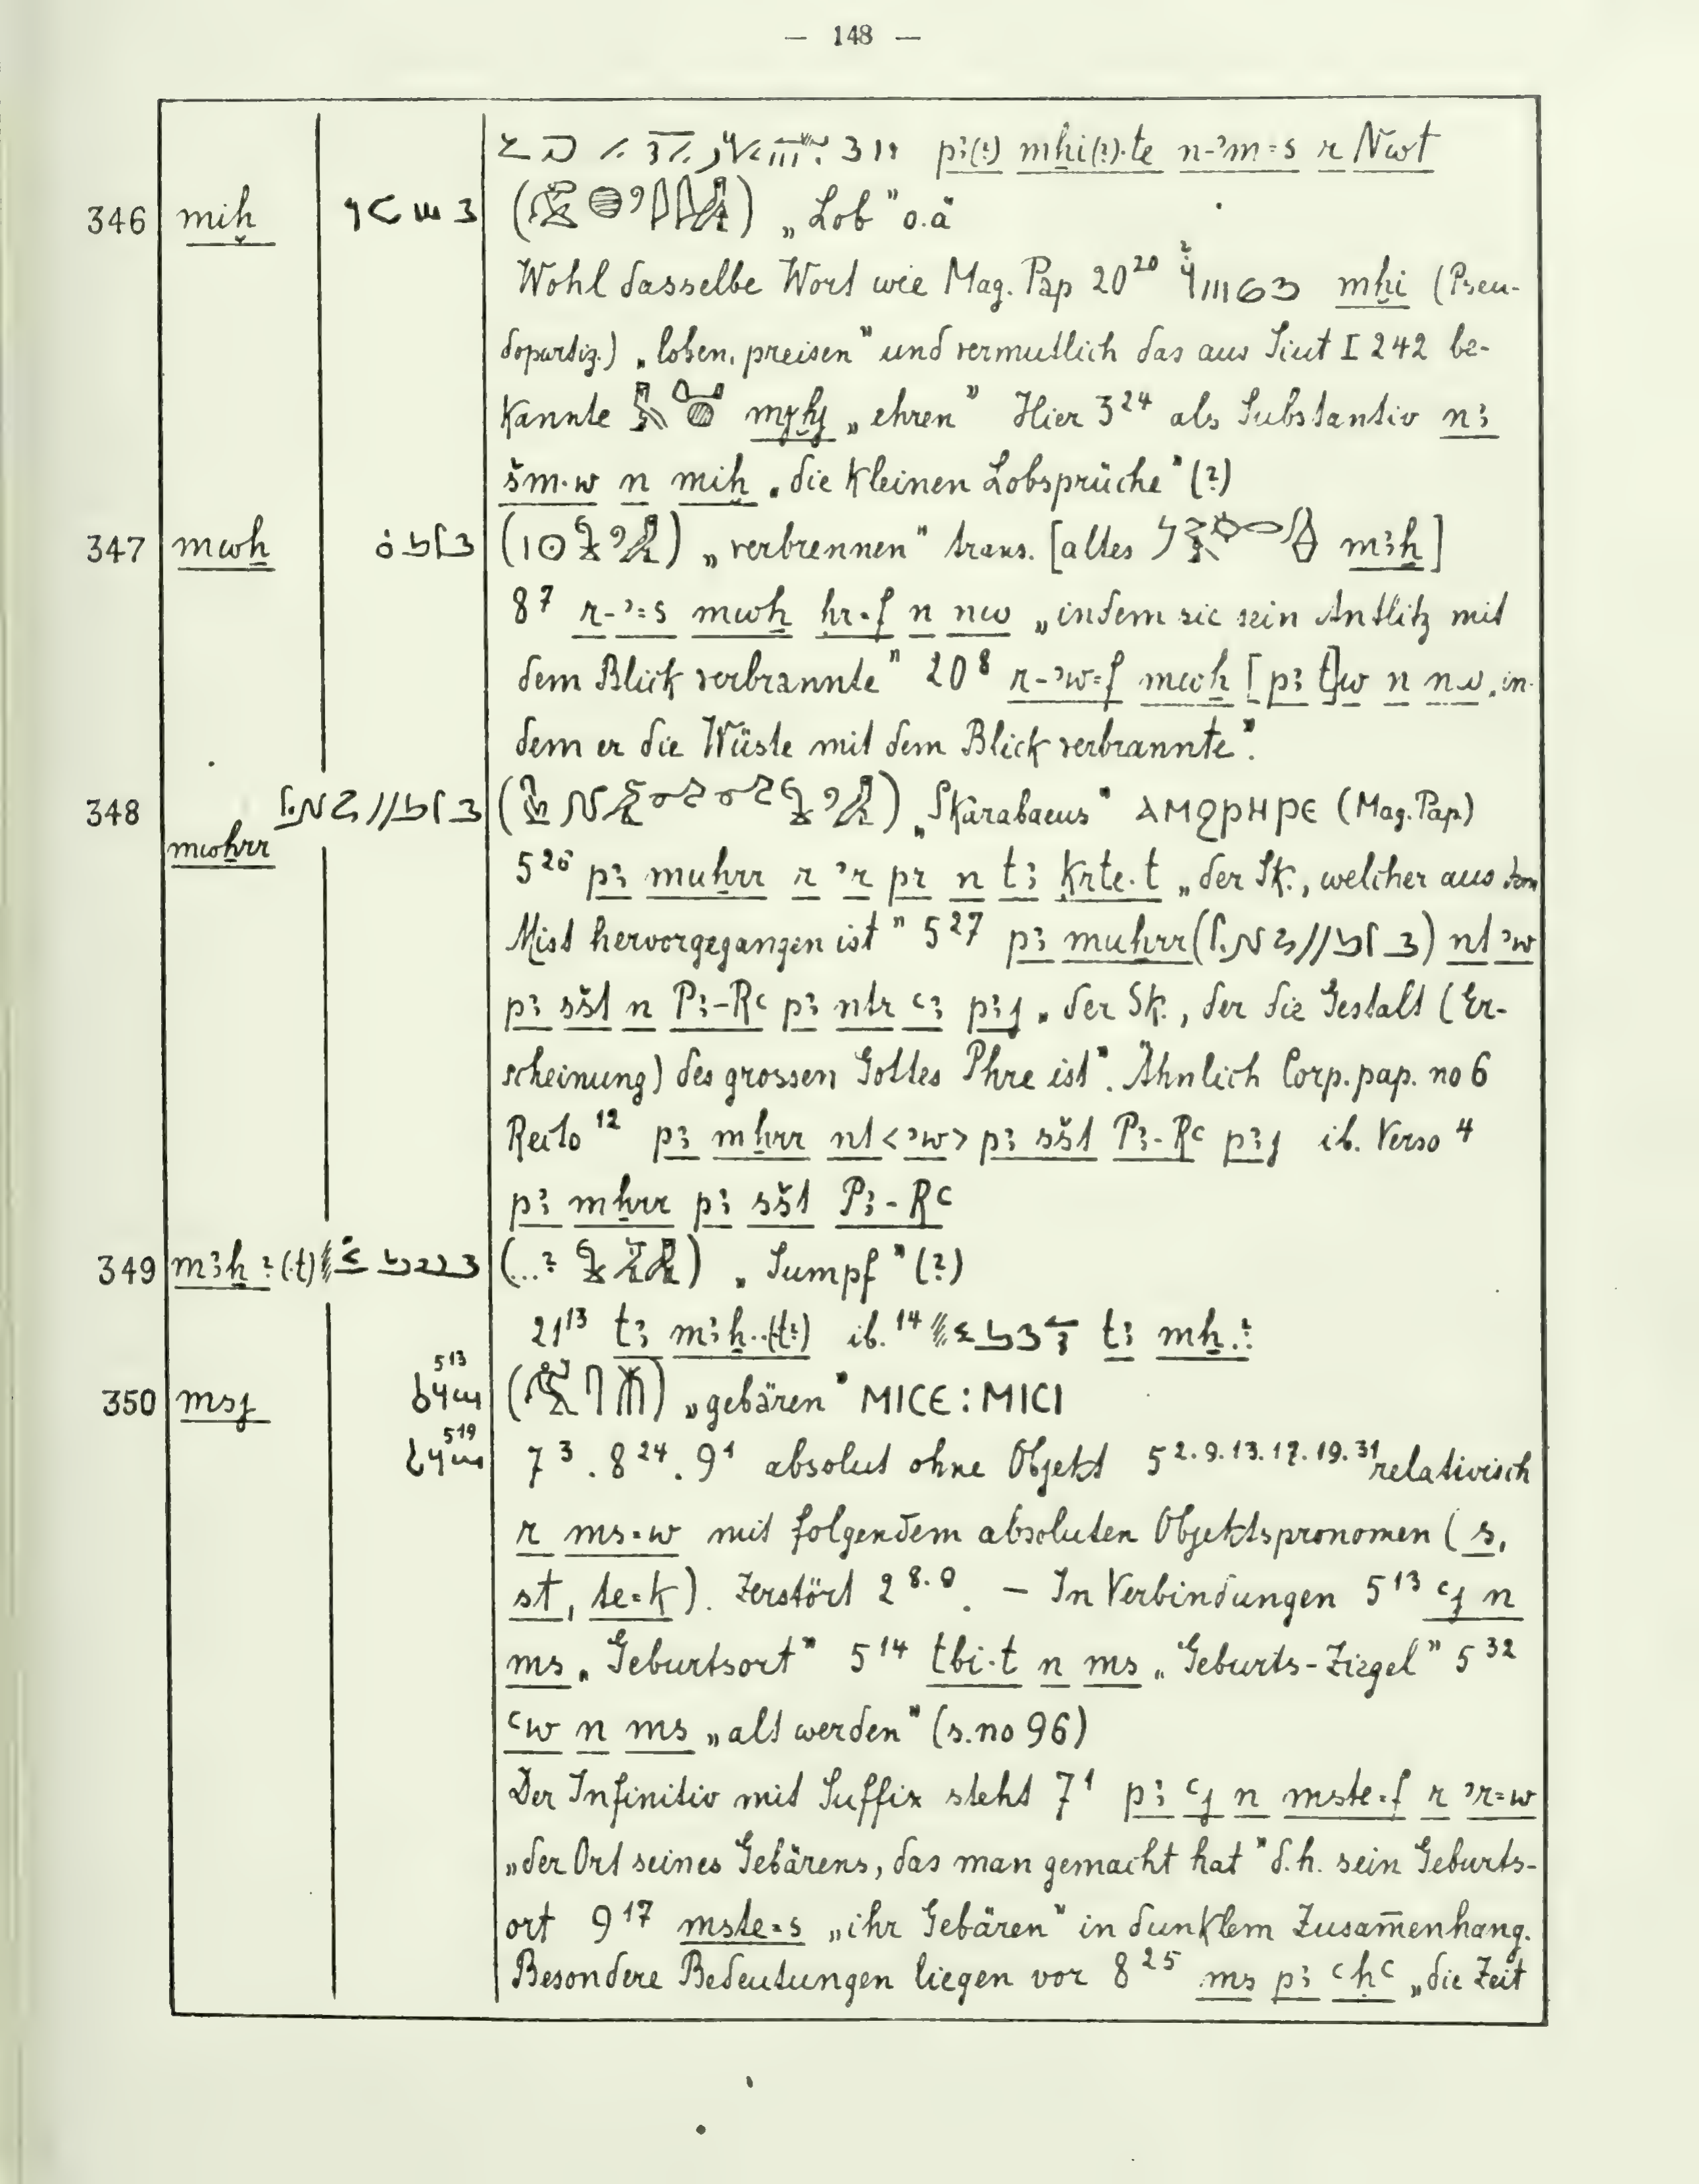 — 148 —
pꜣ(?) mḫi(?)·te n-ʾm=s r Nwt
346 miḫ „Lob" o.ä
Wohl dasselbe Wort wie Mag. Pap 20²⁰ mḫi (Pseu-
dopartiz.) „loben, preisen" und vermutlich das aus Siut I 242 be-
kannte mꜣḫj „ehren" Hier 3²⁴ als Substantiv nꜣ
šm·w n miḫ „die kleinen Lobsprüche" (?)
347 mwḫ „verbrennen" trans. [altes mꜣḫ]
8⁷ r-ʾ=s mwḫ ḥr=f n nw „indem sie sein Antlitz mit
dem Blick verbrannte" 20⁸ r-ʾw=f mwḫ [pꜣ t]w n nw „in-
dem er die Wüste mit dem Blick verbrannte".
348 mwḫrr „Skarabaeus" ⲁⲙϩⲣⲏⲣⲉ (Mag. Pap)
5²⁶ pꜣ muḫrr r ʾr pr n tꜣ krte·t „der Sk., welcher aus dem
Mist hervorgegangen ist" 5²⁷ pꜣ muḫrr ( ) nt ʾw
pꜣ sšt n Pꜣ-Rꜥ pꜣ ntr ꜥꜣ pꜣj „der Sk., der die Gestalt (Er-
scheinung) des grossen Gottes Phre ist". Ähnlich Corp. pap. no 6
Recto ¹² pꜣ mḫrr nt <ʾw> pꜣ sšt Pꜣ-Rꜥ pꜣj ib. Verso ⁴
pꜣ mḫrr pꜣ sšt Pꜣ-Rꜥ
349 mꜣḫ ?(·t) (...? ) „Sumpf" (?)
21¹³ tꜣ mꜣḫ..(t?) ib. ¹⁴ tꜣ mḫ.?
5¹³
350 msj „gebären" ⲙⲓⲥⲉ : ⲙⲓⲥⲓ
5¹⁹
7³. 8²⁴. 9¹ absolut ohne Objekt 5²·⁹·¹³·¹⁷·¹⁹·³¹ relativisch
r ms=w mit folgendem absoluten Objektspronomen (s,
st, te=k). Zerstört 2⁸·⁹. — In Verbindungen 5¹³ ꜥj n
ms „Geburtsort" 5¹⁴ tbi·t n ms „Geburts-Ziegel" 5³²
ꜥw n ms „alt werden" (s. no 96)
Der Infinitiv mit Suffix steht 7¹ pꜣ ꜥj n mste=f r ʾr=w
„der Ort seines Gebärens, das man gemacht hat" d.h. sein Geburts-
ort 9¹⁷ mste=s „ihr Gebären" in dunklem Zusam̄enhang.
Besondere Bedeutungen liegen vor 8²⁵ ms pꜣ ꜥḥꜥ „die Zeit